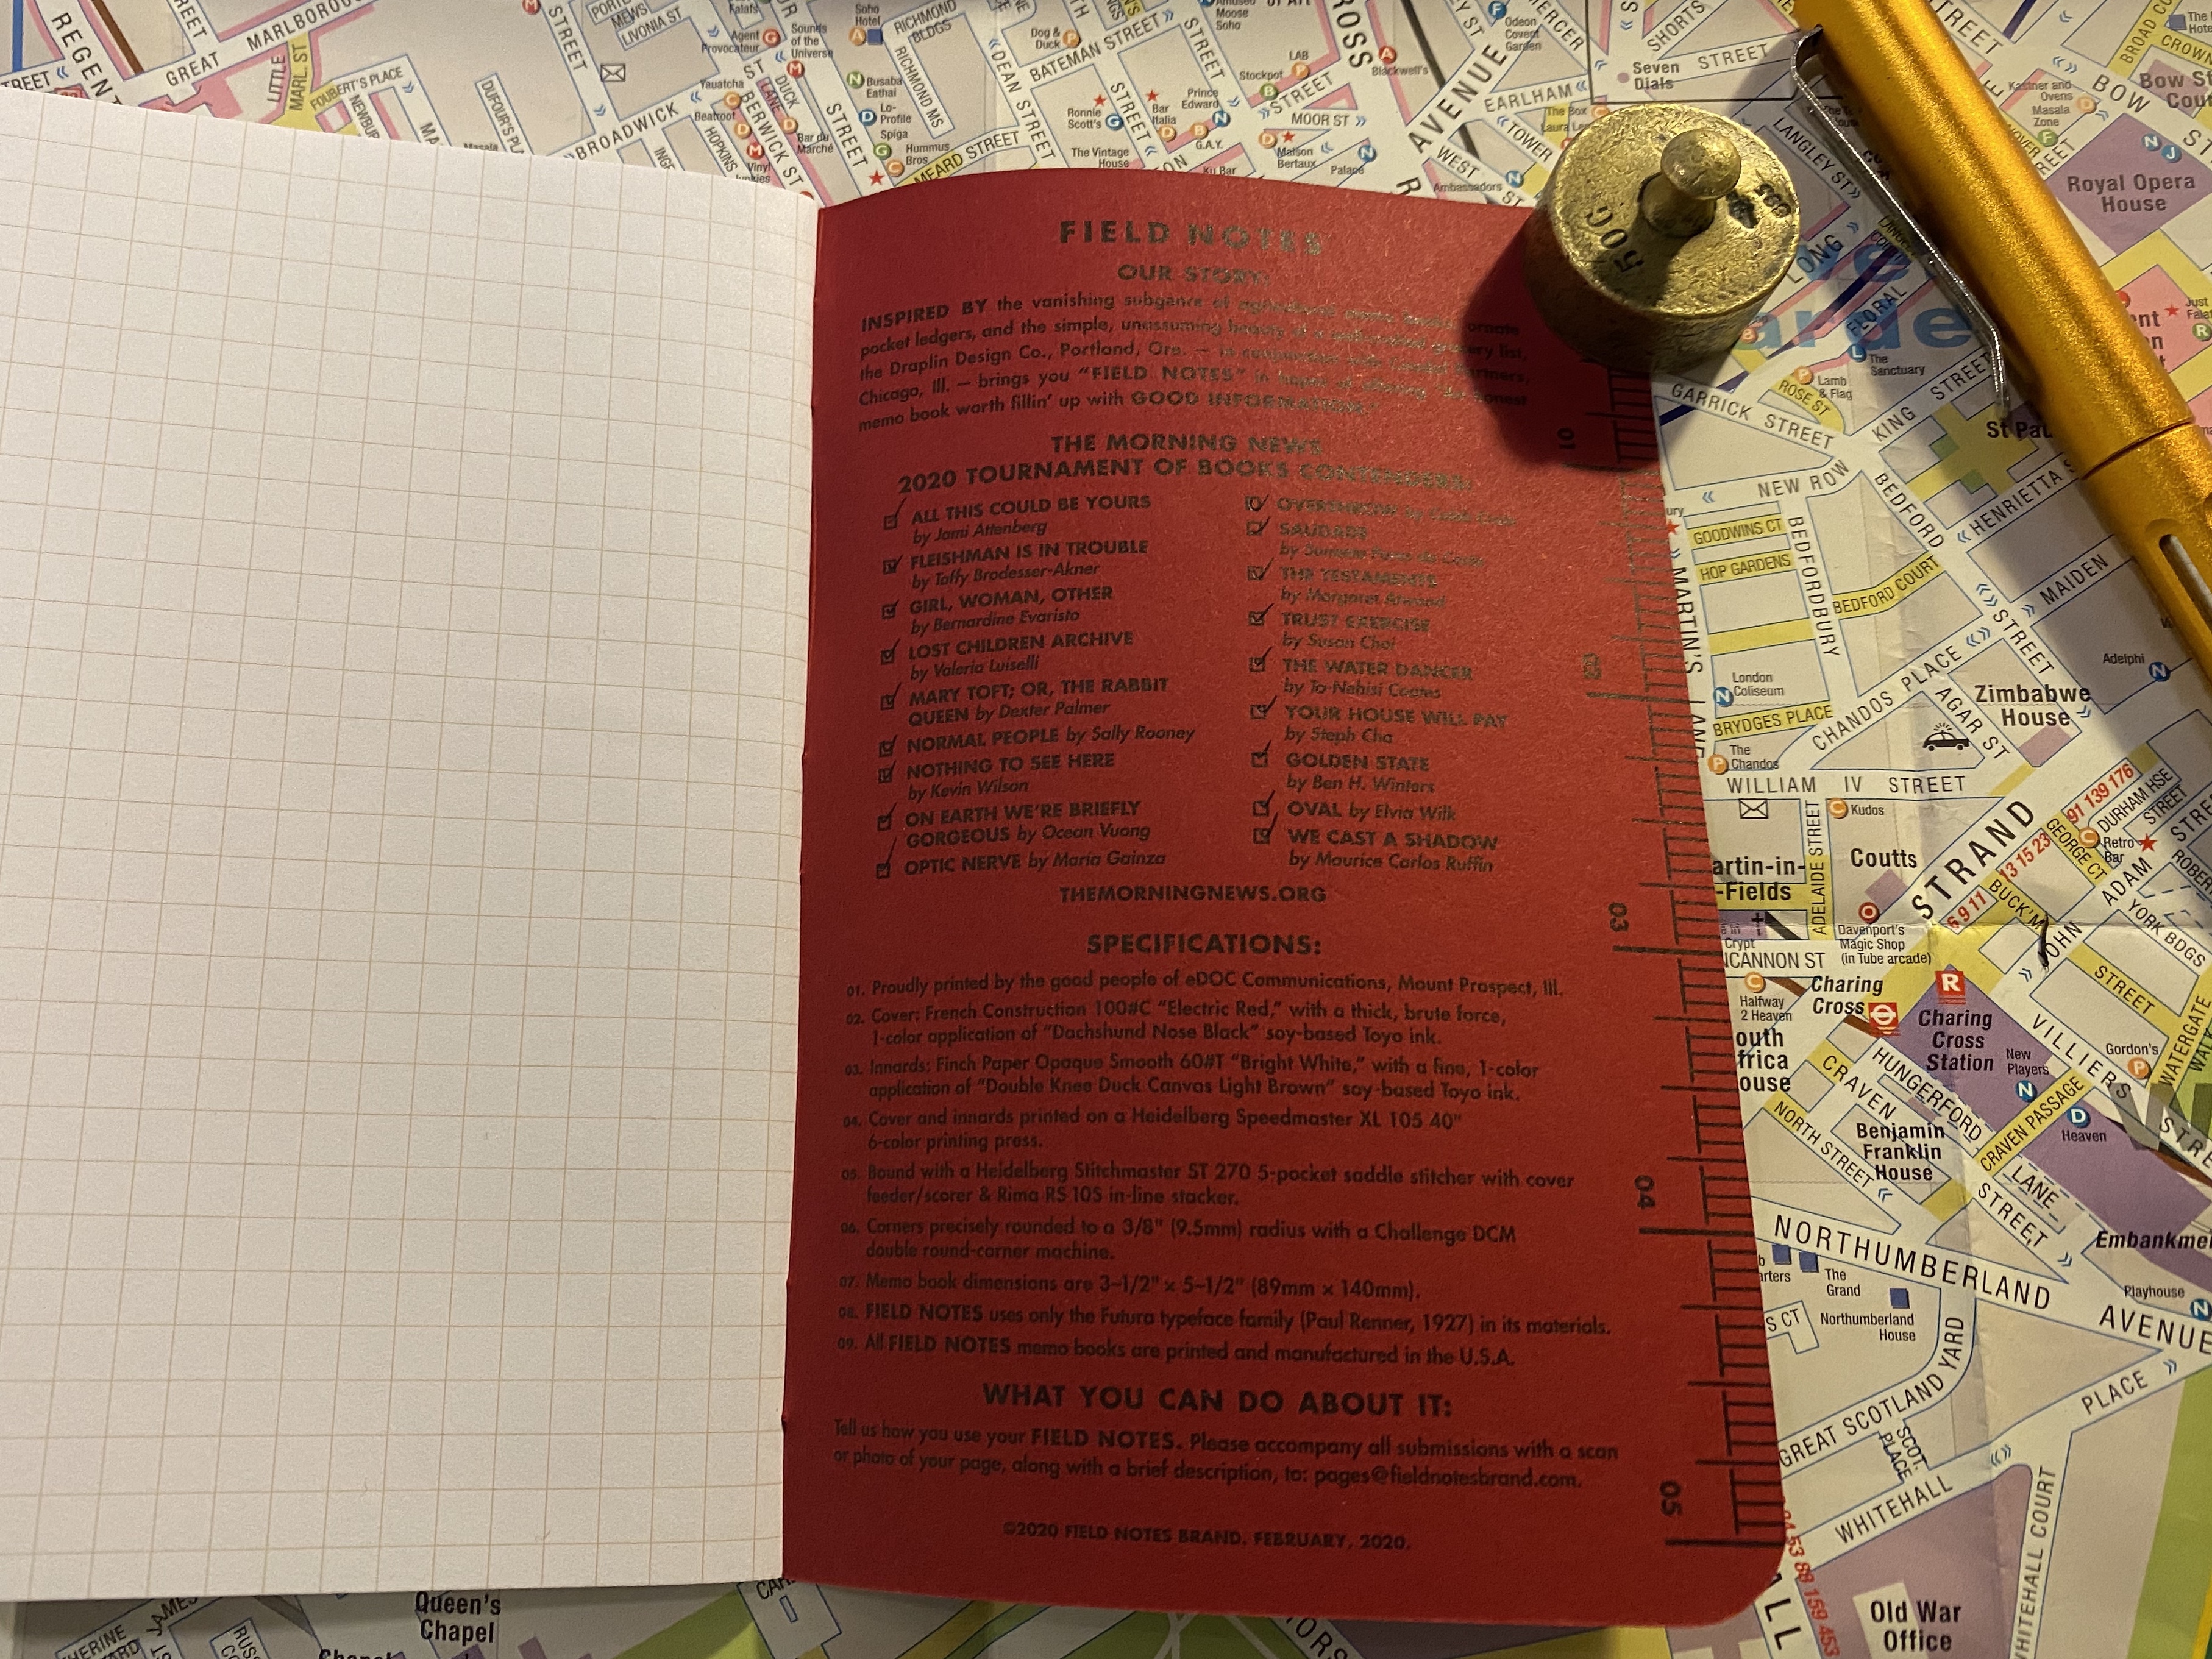 FIELD NOTES
OUR STORY:
INSPIRED BY the vanishing subgenre of agricultural memo books, ornate
pocket ledgers, and the simple, unassuming beauty of a well-crafted grocery list,
the Draplin Design Co., Portland, Ore. — in conjunction with Coudal Partners,
Chicago, Ill. — brings you “FIELD NOTES” in hopes of offering “An honest
memo book worth fillin’ up with GOOD INFORMATION.”
THE MORNING NEWS
2020 TOURNAMENT OF BOOKS CONTENDERS:
ALL THIS COULD BE YOURS
by Jami Attenberg
FLEISHMAN IS IN TROUBLE
by Taffy Brodesser-Akner
GIRL, WOMAN, OTHER
by Bernardine Evaristo
LOST CHILDREN ARCHIVE
by Valeria Luiselli
MARY TOFT; OR, THE RABBIT
QUEEN by Dexter Palmer
NORMAL PEOPLE by Sally Rooney
NOTHING TO SEE HERE
by Kevin Wilson
ON EARTH WE’RE BRIEFLY
GORGEOUS by Ocean Vuong
OPTIC NERVE by María Gainza
OVERTHROW by
SAUDADE
by
THE TESTAMENTS
by Margaret Atwood
TRUST EXERCISE
by Susan Choi
THE WATER DANCER
by Ta-Nehisi Coates
YOUR HOUSE WILL PAY
by Steph Cha
GOLDEN STATE
by Ben H. Winters
OVAL by Elvia Wilk
WE CAST A SHADOW
by Maurice Carlos Ruffin
THEMORNINGNEWS.ORG
SPECIFICATIONS:
01. Proudly printed by the good people of eDOC Communications, Mount Prospect, Ill.
02. Cover: French Construction 100#C “Electric Red,” with a thick, brute force,
1-color application of “Dachshund Nose Black” soy-based Toyo ink.
03. Innards: Finch Paper Opaque Smooth 60#T “Bright White,” with a fine, 1-color
application of “Double Knee Duck Canvas Light Brown” soy-based Toyo ink.
04. Cover and innards printed on a Heidelberg Speedmaster XL 105 40"
6-color printing press.
05. Bound with a Heidelberg Stitchmaster ST 270 5-pocket saddle stitcher with cover
feeder/scorer & Rima RS 10S in-line stacker.
06. Corners precisely rounded to a 3/8" (9.5mm) radius with a Challenge DCM
double round-corner machine.
07. Memo book dimensions are 3-1/2" × 5-1/2" (89mm × 140mm).
08. FIELD NOTES uses only the Futura typeface family (Paul Renner, 1927) in its materials.
09. All FIELD NOTES memo books are printed and manufactured in the U.S.A.
WHAT YOU CAN DO ABOUT IT:
Tell us how you use your FIELD NOTES. Please accompany all submissions with a scan
or photo of your page, along with a brief description, to: pages@fieldnotesbrand.com.
©2020 FIELD NOTES BRAND. FEBRUARY, 2020.
01
03
04
05
50G
REGENT
STREET
GREAT MARLBOROUGH
LITTLE
MARL. ST
FOUBERT'S PLACE
DUFOUR'S PL
BROADWICK
STREET
LIVONIA ST
Agent
Provocateur
Sounds
of the
Universe
Soho
Hotel
RICHMOND
BLDGS
RICHMOND MS
Yauatcha
Beatroot
HOPKINS
BERWICK ST
DUCK
LANE
Bar du
Marché
Vinyl
Junkies
Busaba
Eathai
Lo-
Profile
Spiga
Hummus
Bros
MEARD STREET
DEAN STREET
Dog &
Duck
BATEMAN STREET
Ronnie
Scott's
Bar
Italia
Prince
Edward
G.A.Y.
Ku Bar
The Vintage
House
Moose
Soho
LAB
Stockpot
STREET
MOOR ST
Maison
Bertaux
Palace
Blackwell's
AVENUE
Odeon
Covent
Garden
MERCER
SHORTS
Seven
Dials
STREET
EARLHAM
TOWER
WEST ST
Ambassadors
The Box
LANGLEY ST
LONG
FLORAL
The
Sanctuary
Lamb
& Flag
ROSE ST
GARRICK STREET
KING STREET
NEW ROW
BEDFORD
STREET
HENRIETTA
BROAD
CROWN
BOW ST
Bow St
Kastner and
Ovens
Masala
Zone
Royal Opera
House
MARTIN'S LANE
GOODWINS CT
HOP GARDENS
BEDFORDBURY
BEDFORD COURT
MAIDEN
Adelphi
London
Coliseum
BRYDGES PLACE
CHANDOS PLACE
AGAR ST
Zimbabwe
House
The
Chandos
WILLIAM IV STREET
ADELAIDE STREET
Kudos
Coutts
STRAND
6 9 11 13 15 23 91 139 176
DURHAM HSE
STREET
GEORGE CT
Retro
Bar
ADAM
BUCK'M
JOHN
YORK BDGS
artin-in-
-Fields
Crypt
Davenport's
Magic Shop
(in Tube arcade)
NCANNON ST
Halfway
2 Heaven
Charing
Cross
Charing
Cross
Station
outh
frica
ouse
New
Players
VILLIERS STREET
Gordon's
WATERGATE
Heaven
HUNGERFORD
LANE
CRAVEN PASSAGE
CRAVEN
STREET
NORTH STREET
Benjamin
Franklin
House
Embankme
Playhouse
NORTHUMBERLAND AVENUE
The
Grand
Northumberland
House
S CT
GREAT SCOTLAND YARD
SCOT.
PLACE
WHITEHALL
PLACE
WHITEHALL COURT
53 88 159 453
Old War
Office
Queen's
Chapel